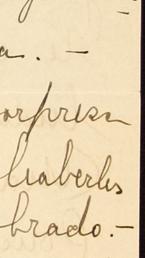 a. —
orpresa
haberles
brado. —